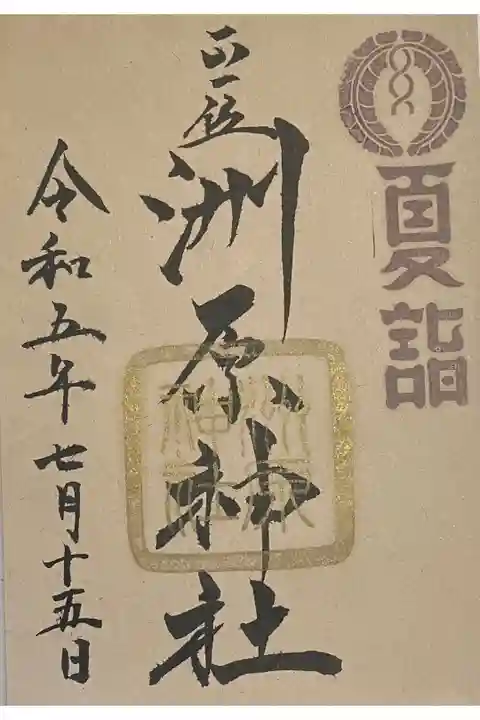 夏詣
正一位
洲原神社
洲原
神社
令和五年七月十五日